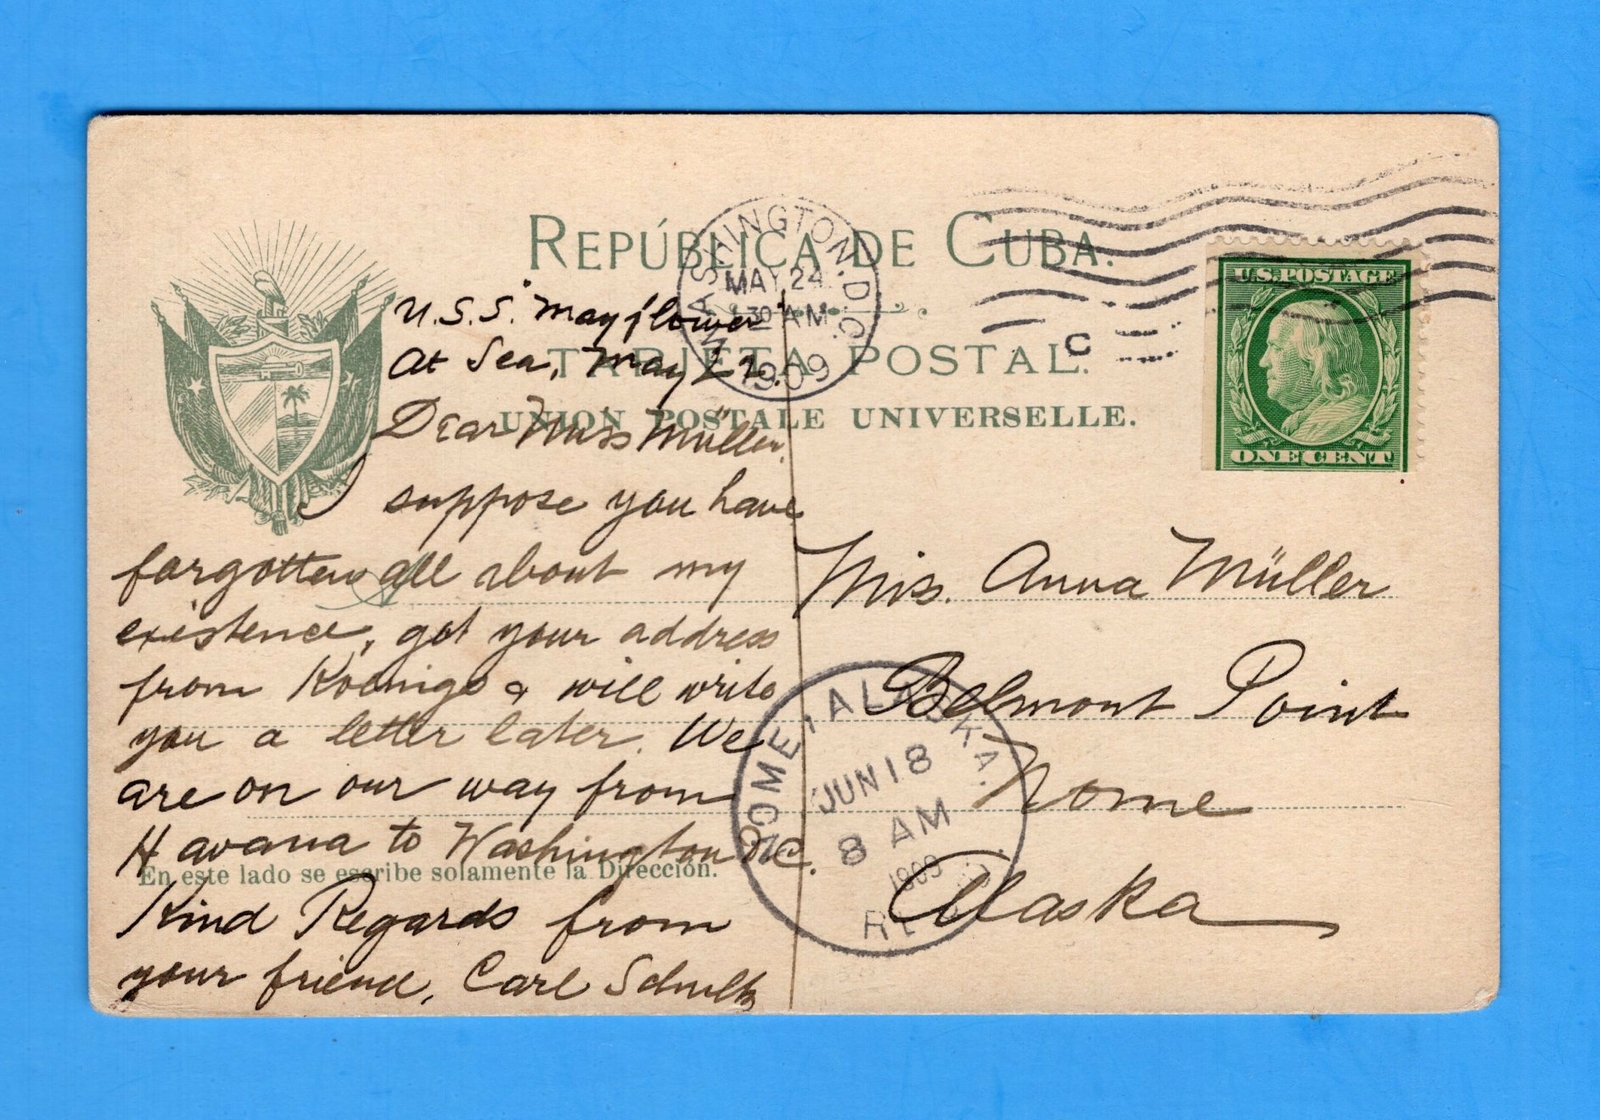 REPÚBLICA DE CUBA.
TARJETA POSTAL.
UNION POSTALE UNIVERSELLE.
WASHINGTON. D.C.
MAY 24
30 AM
1909
C
U.S. POSTAGE
ONE CENT
U.S.S. "Mayflower"
At Sea, May 22.
Dear Miss Müller,
I suppose you have
forgotten all about my
existence, got your address
from Koenigs & will write
you a letter later. We
are on our way from
Havana to Washington D.C.
En este lado se escribe solamente la Dirección.
Kind Regards from
your friend, Carl Schultz
Miss. Anna Müller
Belmont Point
Nome
Alaska
NOME, ALASKA.
JUN 18
8 AM
1909